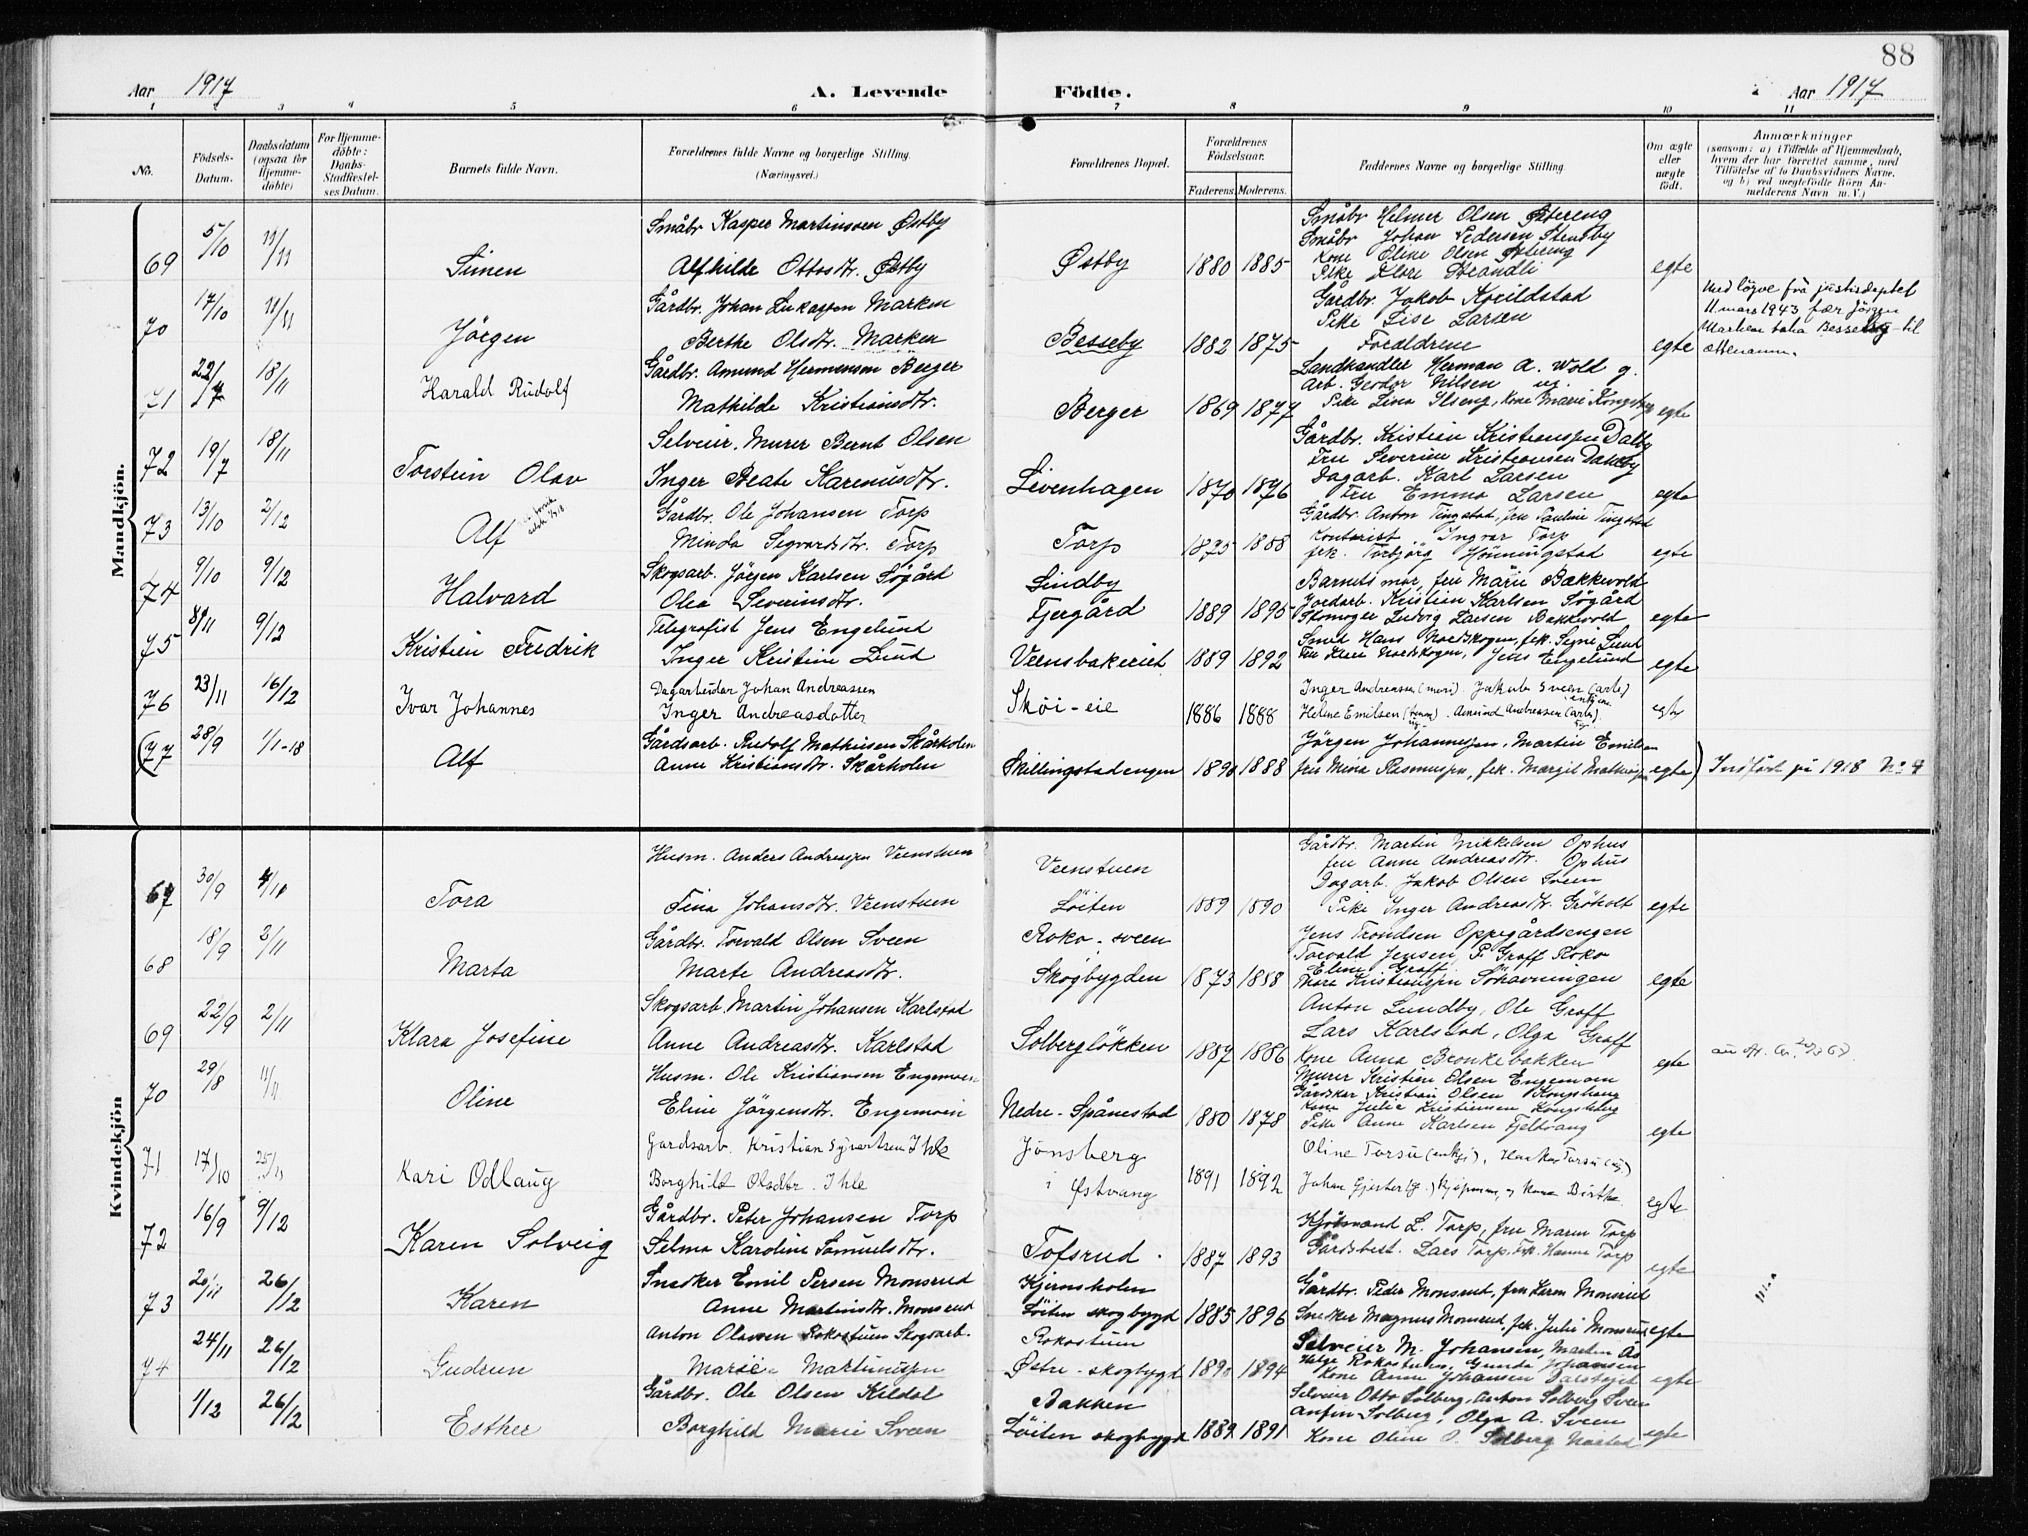 88
Aar 1917
A. Levende
Födte.
Aar 1917
1 2 3 4 5 6 7 8 9 10 11
No.
Födsels-Datum.
Daabsdatum (ogsaa for Hjemme-döbte)
For Hjemme-döbte: Daabs-Stadfæstel-ses Datum.
Barnets fulde Navn.
Forældrenes fulde Navne og borgerlige Stilling. (Næringsvei.)
Forældrenes Bopæl.
Forældrenes Födselsaar.
Faderens. Moderens.
Faddernes Navne og borgerlige Stilling.
Om ægte eller uægte födt.
Anmærkninger
(saasom: a) i Tilfælde af Hjemmedaab, hvem der har forrettet samme, med Tilföielse af to Daabsvidners Navne, og b) ved uægtefödte Börn An-melderens Navn m. V.)
Mandkjön.
69 5/10 11/11 Simen
Småbr Kasper Martinsen Østby
Alfhilde Ottosdtr. Østby
Østby 1880 1885
Småbr Helmer Olsen
Småbr Johan Pedersen Stensby
Kone Oline Olsen
Pike
egte
70 17/10 11/11 Jörgen
Gårdbr. Johan Lukassen Marken
Berthe Olsdtr. Marken
Besseby 1882 1875
Gårdbr. Jakob
Pike Lise Larsen
Forældrene
egte
Med löyve frå justisdeptet
11 mars 1943 fær Jörgen
Marken taka Besseby til
ættenamn.
71 22/7 18/11 Harald Rudolf
Gårdbr. Amund Hermansen Berger
Mathilde Kristiansdtr.
Berger 1869 1877
Landhandler Herman A. Wold g.
Arb. Georg Nilsen ug.
Pike Lina Ilseng, Kone Marie
egte
72 19/7 18/11 Torstein Olav
Selveier. Murer Bernt Olsen
Inger Beate Karenusdtr.
Livenhagen 1870 1876
Gårdbr. Kristian Kristiansen Dalby
Fru Severine Kristiansen Dalby
Dagarb. Karl Larsen
Fru Emma Larsen
egte
73 13/10 2/12 Alf
Gårdbr. Ole Johansen Torp
Minda Sigvardsdtr. Torp
Torp 1875 1888
Gårdbr. Anton Tingstad, fru Pauline Tingstad
Kontorist Ingvar Torp
frk. Torbjörg Hönningstad
egte
74 9/10 9/12 Halvard
Skogsarb. Jörgen Karlsen Sögård
Olea Severinsdtr.
Lindby
Fjergård 1889 1895
Barnets mor, fru Marie Bækkevold
Jordarb. Kristian Karlsen Sögård
Skomager Ludvig Larsen Bækkevold
egte
75 8/11 9/12 Kristian Fredrik
Telegrafist Jens Engelund
Inger Kristine Lund
Veensbakeriet 1889 1892
Smed Hans Nordskogen, frk. Signe Lund
Fru Nordskogen, Jens Engelund
egte
76 23/11 16/12 Ivar Johannes
Dagarbeider Johan Andreassen
Inger Andreasdatter
Skøi-eie 1886 1888
Inger Andreasen (mori). Jakob Sveen (arb.)
Helene Emilsen. Amund Andreassen (arb.)
egte
(77 28/9 1/1-18 Alf
Gårdsarb. Rudolf Mathiusen Skårholen
Anne Kristiansdtr. Skårholen
Skillingstadengen 1890 1888
Jörgen Johannessen, Martin Emilsen
fru Mina Rasmussen, frk. Margit Mathiusen
egte) Indfört på 1918 No 4
Kvindekjön
67 30/9 4/11 Tora
Husm. Anders Andreassen Veenstuen
Tina Johansdtr. Veenstuen
Veenstuen
Löiten 1889 1890
Gårdbr. Martin Mikkelsen Ophus
fru Anne Andreasdtr. Ophus
Dagarb. Jakob Olsen Sveen
Pike Inger Andreasdtr. Gröholt
egte
68 18/9 2/11 Marta
Gårdbr. Torvald Olsen Sveen
Marte Andreasdtr.
Roko-sveen
Skogbygden 1873 1888
Jens Trondsen Oppegårdsengen
Torvald Jensen, P. Graff Roko
Eline Graff
Kristiansen
egte
69 22/9 2/11 Klara Josefine
Skogsarb. Martin Johansen Karlstad
Anne Andreasdtr. Karlstad
Solberglökken 1887 1886
Anton Lundby, Ole Graff
Lars Karlstad, Olga Graff
Kone Anna Bronkebakken
egte
70 29/8 11/11 Oline
Husm. Ole Kristiansen Engemoen
Eline Jörgensdtr. Engemoen
Nedre-Spånestad 1880 1878
Murer Kristian Olsen Engemoen
Gårdskar Kristian Olsen Kongshaug
Kone Julie Kristiansen
Pike Anne Karlsen Fjeltvang
egte
71 17/10 25/11 Kari Odlaug
Gardsarb. Kristian Syvertsen Ihle
Borghild Olsdtr. Ihle
Jønsberg
i Østvang 1891 1892
Oline Torsu (enke), Haakon Torsu (ug)
Johan Gjester
egte
72 16/9 9/12 Karen Solveig
Gårdbr. Peter Johansen Torp
Selma Karoline Samuelsdtr.
Tofsrud. 1887 1893
Kjöbmand L. Torp, fru Maren Torp
Gårdsbest. Lars Torp. Frk. Hanna Torp
egte
73 20/11 26/12 Karen
Snedker Emil Persen Monsrud
Anne Martinsdtr. Monsrud
Kjernsholen
Löiten skogbygd 1885 1896
Gårdbr. Peder Monsrud, fru Karen Monsrud
Snedker Magnus Monsrud, frk. Julie Monsrud
egte
74 24/11 26/12 Gudrun
Anton Olavsen Rokostuen Skogsarb.
Marie Martinusen
Rokostuen
Østre-skogbygd 1890 1894
Selveier M. Johansen, Martin Ås
Helge Rokostuen, Gunda Johansen
Kone Anne Johansen
egte
1/12 26/12 Esther
Gårdbr. Ole Olsen Kildal
Borghild Marie Sveen
Bakken
Löiten skogbygd 1889 1891
Selveier Otto Solberg, Anton Solberg Sveen
Anfin Solberg, Olga A. Sveen
Kone Oline O. Solberg
egte